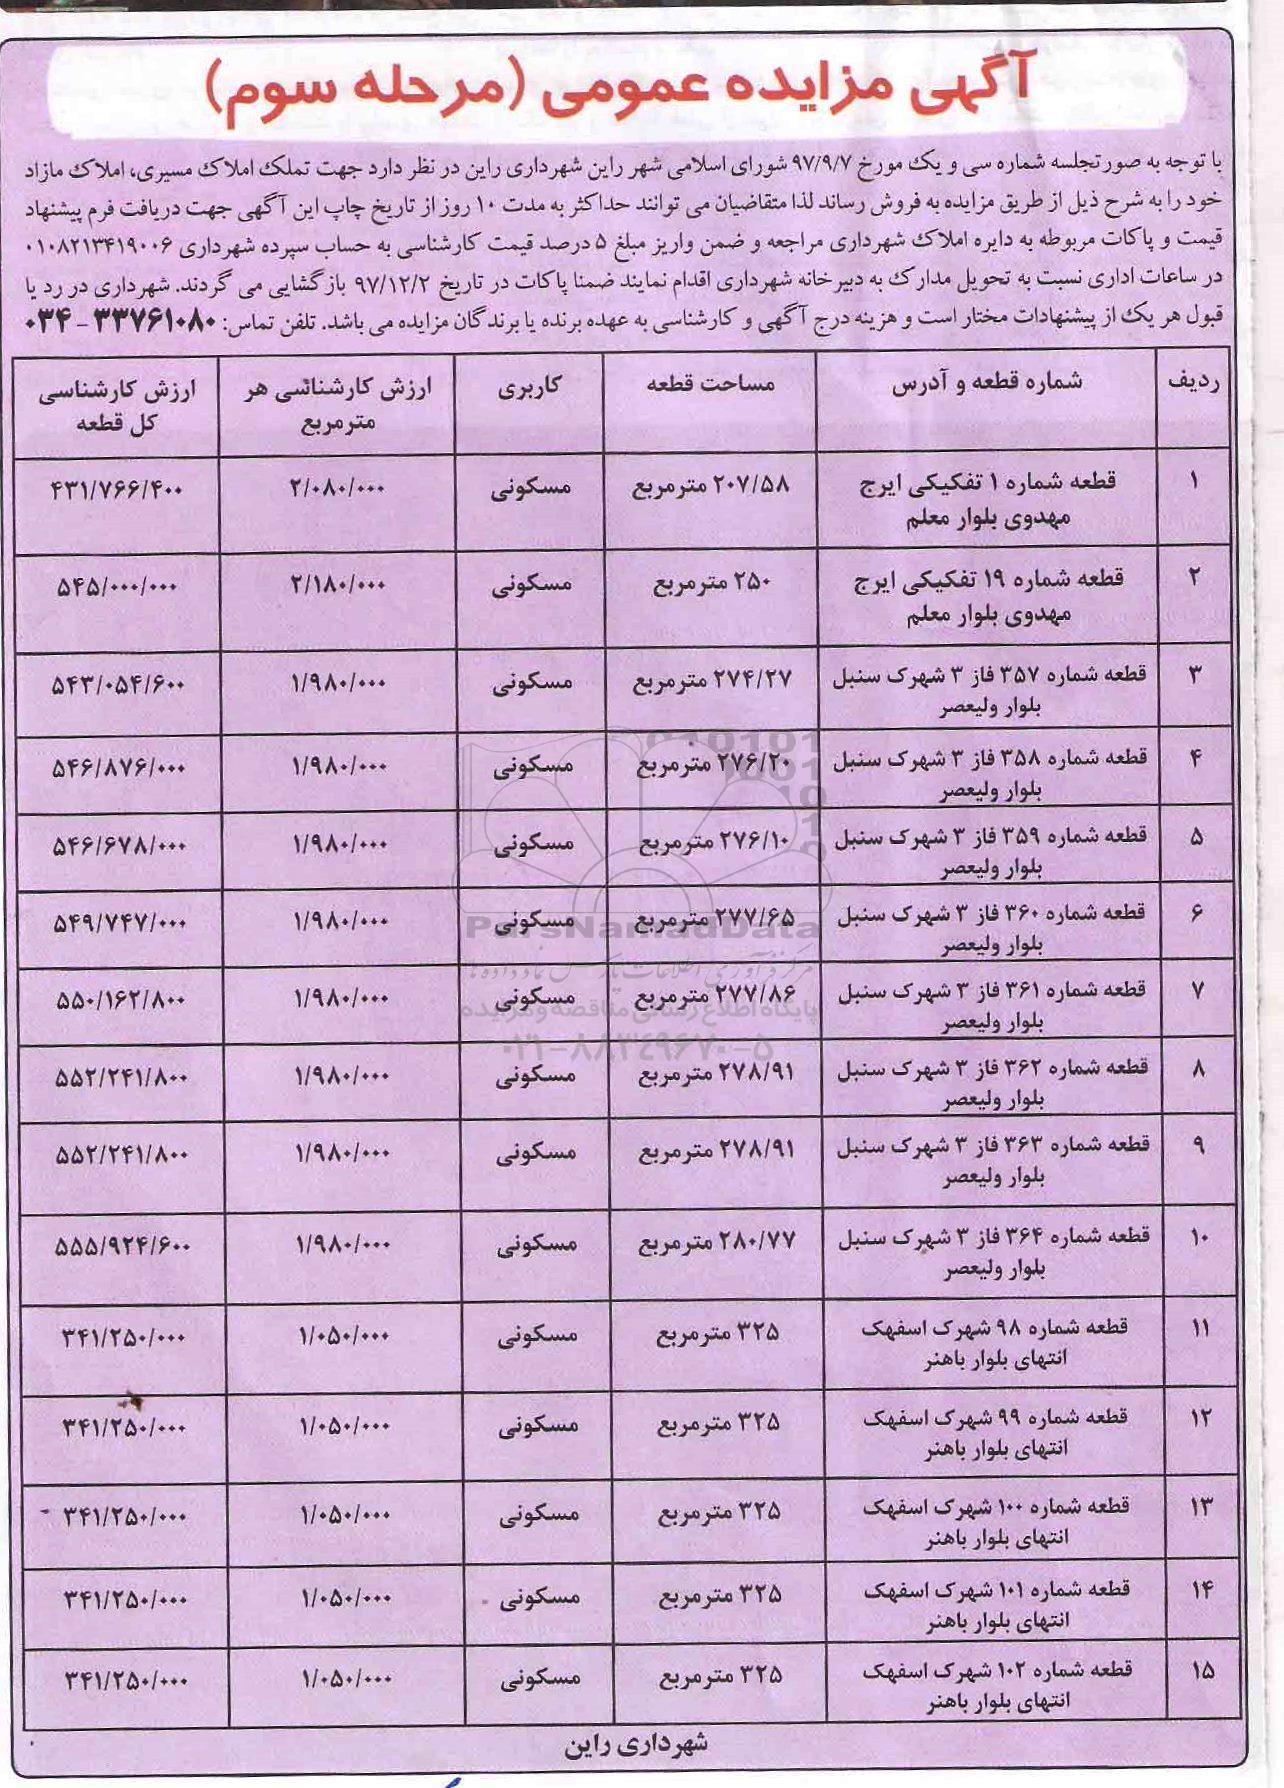 آگهی مزایده عمومی (مرحله سوم)
با توجه به صورتجلسه شماره سی و یک مورخ ۹۷/۹/۷ شورای اسلامی شهر راین شهرداری راین در نظر دارد جهت تملک املاک مسیری، املاک مازاد
خود را به شرح ذیل از طریق مزایده به فروش رساند لذا متقاضیان می توانند حداکثر به مدت ۱۰ روز از تاریخ چاپ این آگهی جهت دریافت فرم پیشنهاد
قیمت و پاکات مربوطه به دایره املاک شهرداری مراجعه و ضمن واریز مبلغ ۵ درصد قیمت کارشناسی به حساب سپرده شهرداری ۰۱۰۸۲۱۳۴۱۹۰۰۶
در ساعات اداری نسبت به تحویل مدارک به دبیرخانه شهرداری اقدام نمایند ضمنا پاکات در تاریخ ۹۷/۱۲/۲ بازگشایی می گردند. شهرداری در رد یا
قبول هر یک از پیشنهادات مختار است و هزینه درج آگهی و کارشناسی به عهده برنده یا برندگان مزایده می باشد. تلفن تماس: ۳۳۷۶۱۰۸۰ - ۰۳۴
ردیف شماره قطعه و آدرس مساحت قطعه کاربری ارزش کارشناسی هر ارزش کارشناسی
مترمربع کل قطعه
۱ قطعه شماره ۱ تفکیکی ایرج ۲۰۷/۵۸ مترمربع مسکونی ۲/۰۸۰/۰۰۰ ۴۳۱/۷۶۶/۴۰۰
مهدوی بلوار معلم
۲ قطعه شماره ۱۹ تفکیکی ایرج ۲۵۰ مترمربع مسکونی ۲/۱۸۰/۰۰۰ ۵۴۵/۰۰۰/۰۰۰
مهدوی بلوار معلم
۳ قطعه شماره ۳۵۷ فاز ۳ شهرک سنبل ۲۷۴/۲۷ مترمربع مسکونی ۱/۹۸۰/۰۰۰ ۵۴۳/۰۵۴/۶۰۰
بلوار ولیعصر
۴ قطعه شماره ۳۵۸ فاز ۳ شهرک سنبل ۲۷۶/۲۰ مترمربع مسکونی ۱/۹۸۰/۰۰۰ ۵۴۶/۸۷۶/۰۰۰
بلوار ولیعصر
۵ قطعه شماره ۳۵۹ فاز ۳ شهرک سنبل ۲۷۶/۱۰ مترمربع مسکونی ۱/۹۸۰/۰۰۰ ۵۴۶/۶۷۸/۰۰۰
بلوار ولیعصر
۶ قطعه شماره ۳۶۰ فاز ۳ شهرک سنبل ۲۷۷/۶۵ مترمربع مسکونی ۱/۹۸۰/۰۰۰ ۵۴۹/۷۴۷/۰۰۰
بلوار ولیعصر
۷ قطعه شماره ۳۶۱ فاز ۳ شهرک سنبل ۲۷۷/۸۶ مترمربع مسکونی ۱/۹۸۰/۰۰۰ ۵۵۰/۱۶۲/۸۰۰
بلوار ولیعصر
۸ قطعه شماره ۳۶۲ فاز ۳ شهرک سنبل ۲۷۸/۹۱ مترمربع مسکونی ۱/۹۸۰/۰۰۰ ۵۵۲/۲۴۱/۸۰۰
بلوار ولیعصر
۹ قطعه شماره ۳۶۳ فاز ۳ شهرک سنبل ۲۷۸/۹۱ مترمربع مسکونی ۱/۹۸۰/۰۰۰ ۵۵۲/۲۴۱/۸۰۰
بلوار ولیعصر
۱۰ قطعه شماره ۳۶۴ فاز ۳ شهرک سنبل ۲۸۰/۷۷ مترمربع مسکونی ۱/۹۸۰/۰۰۰ ۵۵۵/۹۲۴/۶۰۰
بلوار ولیعصر
۱۱ قطعه شماره ۹۸ شهرک اسفهک ۳۲۵ مترمربع مسکونی ۱/۰۵۰/۰۰۰ ۳۴۱/۲۵۰/۰۰۰
انتهای بلوار باهنر
۱۲ قطعه شماره ۹۹ شهرک اسفهک ۳۲۵ مترمربع مسکونی ۱/۰۵۰/۰۰۰ ۳۴۱/۲۵۰/۰۰۰
انتهای بلوار باهنر
۱۳ قطعه شماره ۱۰۰ شهرک اسفهک ۳۲۵ مترمربع مسکونی ۱/۰۵۰/۰۰۰ ۳۴۱/۲۵۰/۰۰۰
انتهای بلوار باهنر
۱۴ قطعه شماره ۱۰۱ شهرک اسفهک ۳۲۵ مترمربع مسکونی ۱/۰۵۰/۰۰۰ ۳۴۱/۲۵۰/۰۰۰
انتهای بلوار باهنر
۱۵ قطعه شماره ۱۰۲ شهرک اسفهک ۳۲۵ مترمربع مسکونی ۱/۰۵۰/۰۰۰ ۳۴۱/۲۵۰/۰۰۰
انتهای بلوار باهنر
شهرداری راین
ParsNamadData
پایگاه اطلاع رسانی مناقصه و مزایده
۰۲۱-۸۸۳۴۹۶۷۰-۵